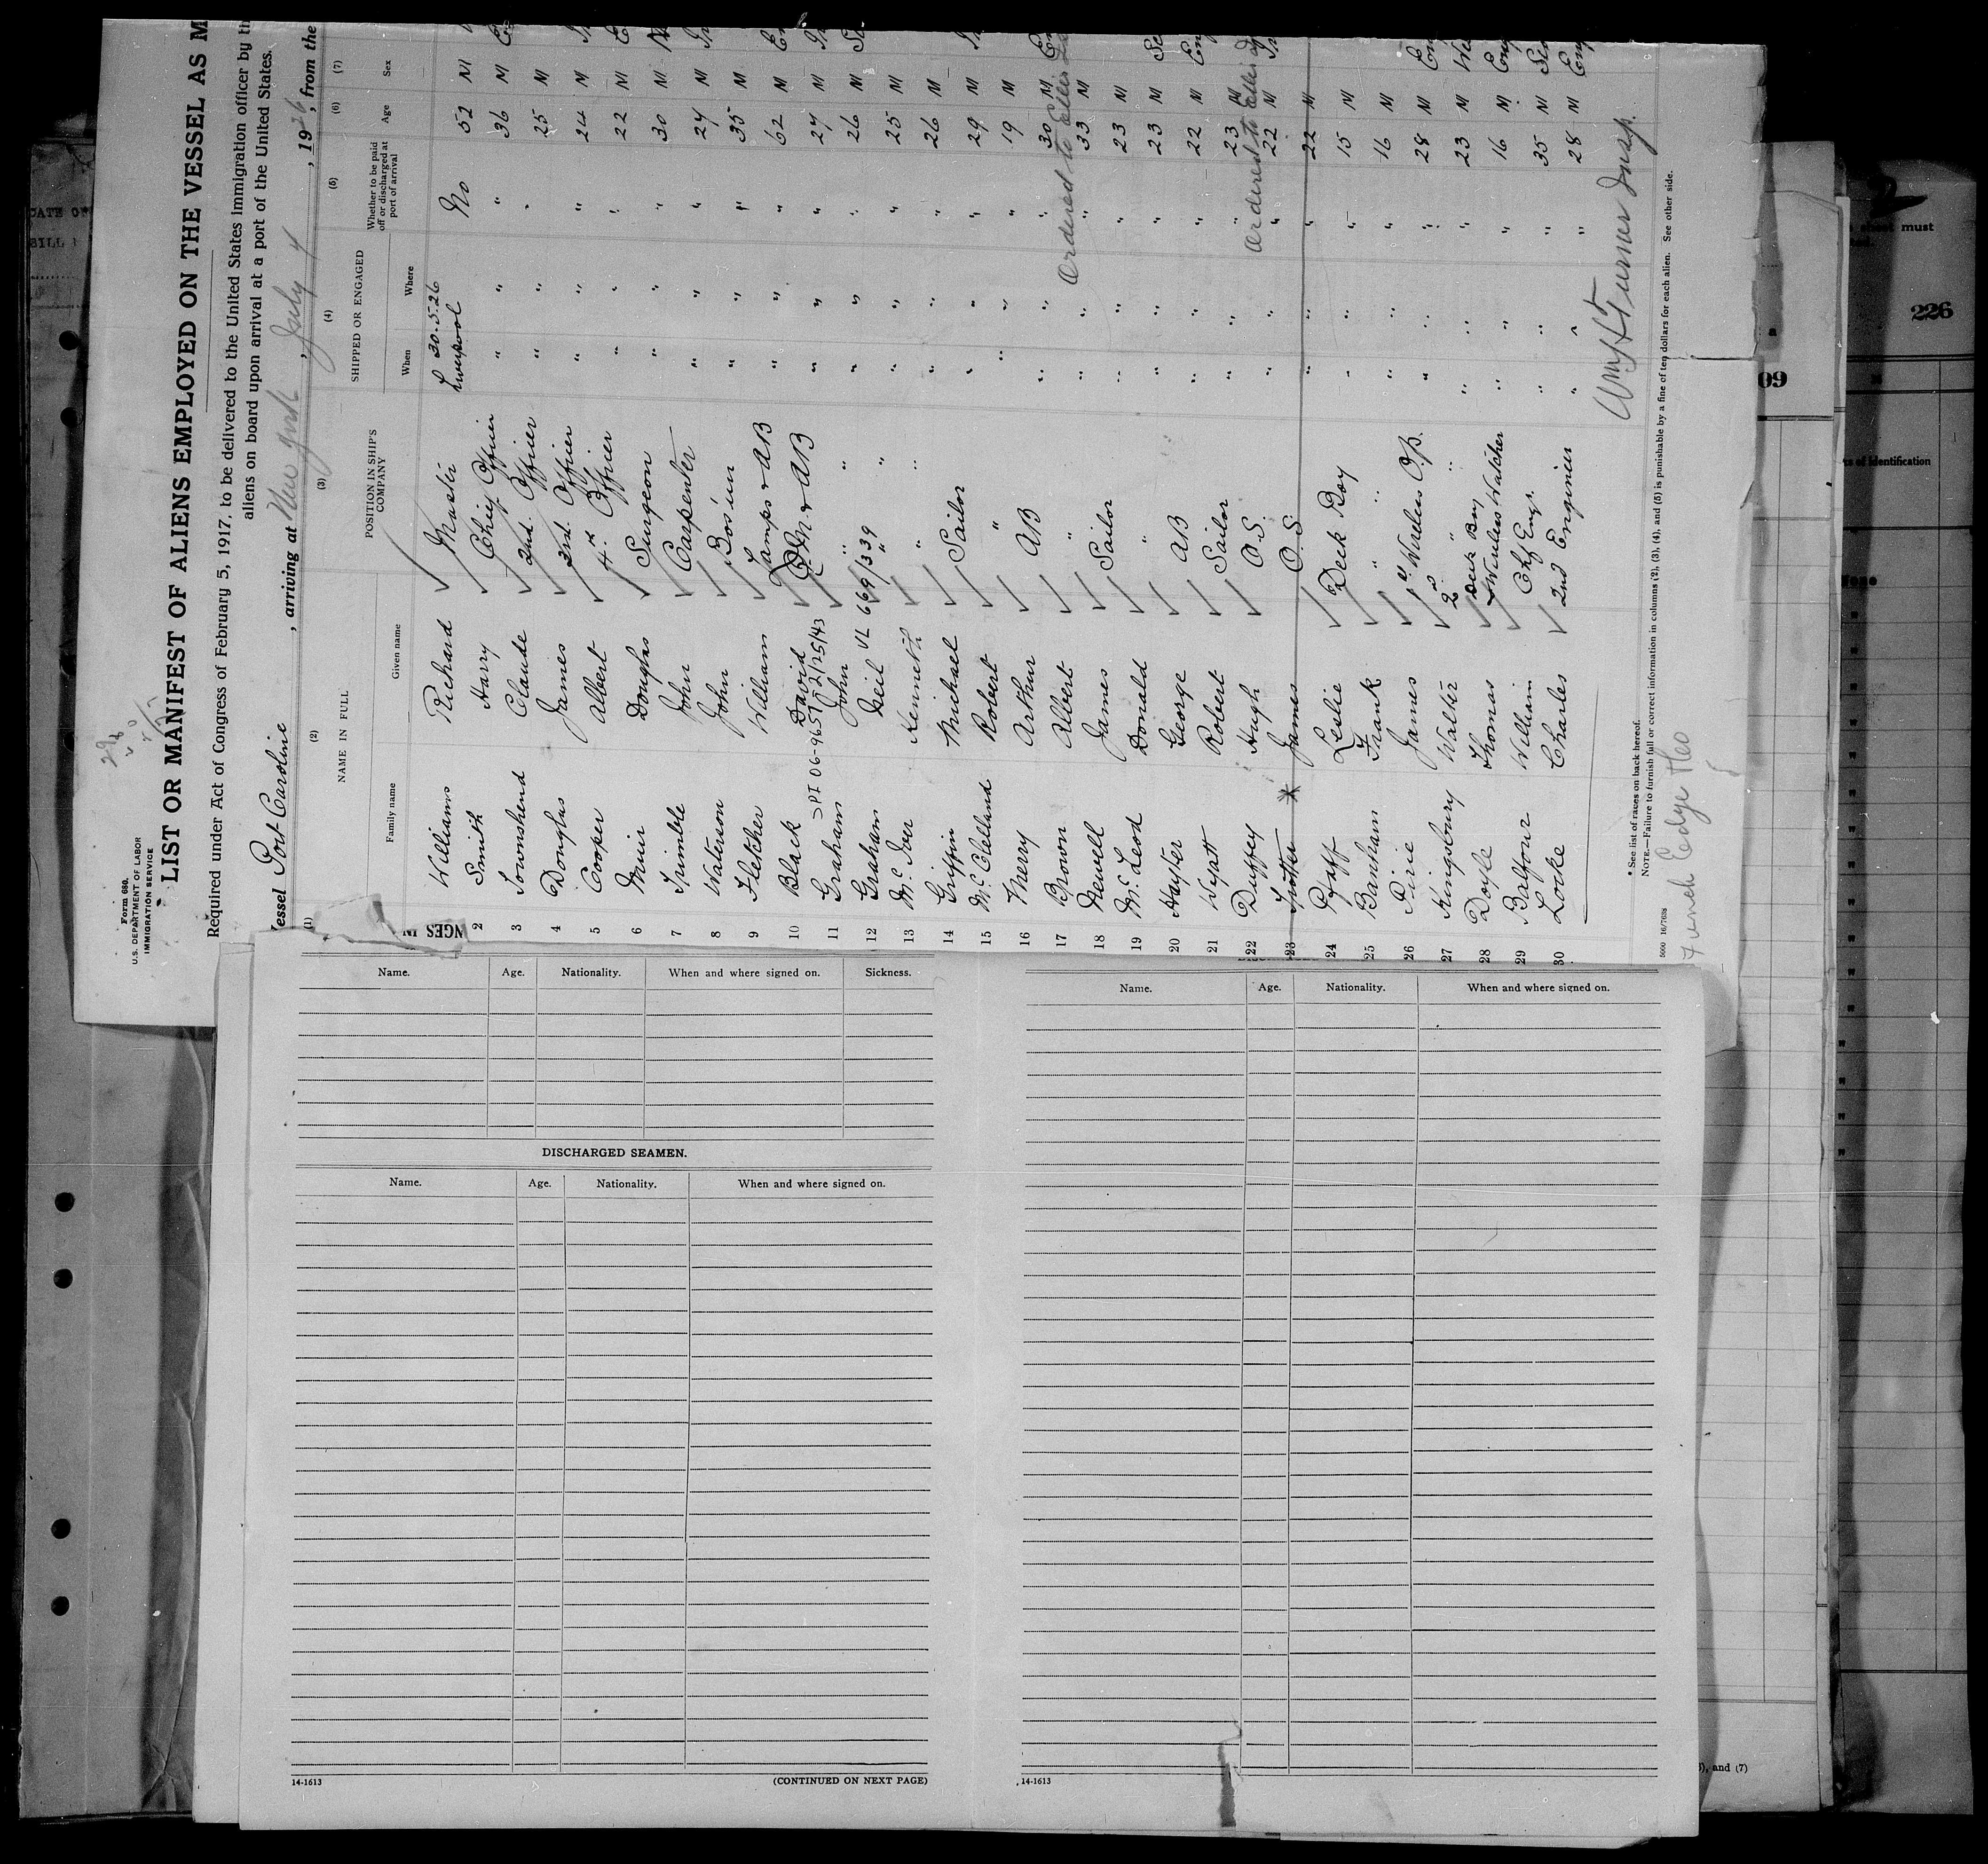 Form 680.
U.S. DEPARTMENT OF LABOR
IMMIGRATION SERVICE
LIST OR MANIFEST OF ALIENS EMPLOYED ON THE VESSEL AS M
Required under Act of Congress of February 5, 1917, to be delivered to the United States immigration officer by th
aliens on board upon arrival at a port of the United States.
essel Port Caroline, arriving at New York, July 4, 1926, from the
(1) (2) (3) (4) (5) (6) (7)
NAME IN FULL
Family name Given name
POSITION IN SHIP'S COMPANY
SHIPPED OR ENGAGED
When Where
Whether to be paid off or discharged at port of arrival
Age Sex
NGES IN
Williams Richard Master Liverpool 30.5.26 No 52 M
2 Smith Harry Chief Officer " " " 36 M
3 Townshend Claude 2nd. Officer " " " 25 M
4 Douglas James 3rd. Officer " " " 24 M
5 Cooper Albert 4th Officer " " " 22 M
6 Muir Douglas Surgeon " " " 30 M
7 Trimble John Carpenter " " " 27 M
8 Waterson John Bos'un " " " 35 M
9 Fletcher William Lamps & AB " " " 62 M
10 Black David Q.M. & AB " " " 27 M
11 Graham John " " " " " 26 M
12 Graham Neil " " " " " 25 M
13 Mc Iver Kenneth " " " " 26 M
14 Griffin Michael Sailor " " " 29 M
15 Mc Clelland Robert " " " " 19 M
16 Merry Arthur AB " " " 30 M
17 Brown Albert " " " " 33 M
18 Newell James Sailor " " " 23 M
19 Mc Leod Donald " " " " 23 M
20 Hayter George AB " " " 22 M
21 Wyatt Robert Sailor " " " 23 M
22 Duffey Hugh O.S. " " " 22 M
23 Trotter James O.S. " " " 22 M
24 Pfaff Leslie Deck Boy " " " 15 M
25 Banham Frank " " " " " 16 M
26 Pirie James Wireless Op. " " " 28 M
27 Kingsbury Walter 2nd " " " " " 23 M
28 Doyle Thomas Deck Boy Wireless Watcher " " " 16 M
29 Balfour William Chf Engr. " " " 35 M
30 Locke Charles 2nd Engineer " " " 28 M
2/25/43
VL 669/339
Ordered to Ellis
Ordered to Ellis
Turner Insp.
* See list of races on back hereof.
NOTE.—Failure to furnish full or correct information in columns (2), (3), (4), and (5) is punishable by a fine of ten dollars for each alien. See other side.
Funch Edye
Name. Age. Nationality. When and where signed on. Sickness.
DISCHARGED SEAMEN.
Name. Age. Nationality. When and where signed on.
14-1613 (CONTINUED ON NEXT PAGE)
Name. Age. Nationality. When and where signed on.
14-1613
CATE OF
BILL
09
must
226
of identification
, and (7)